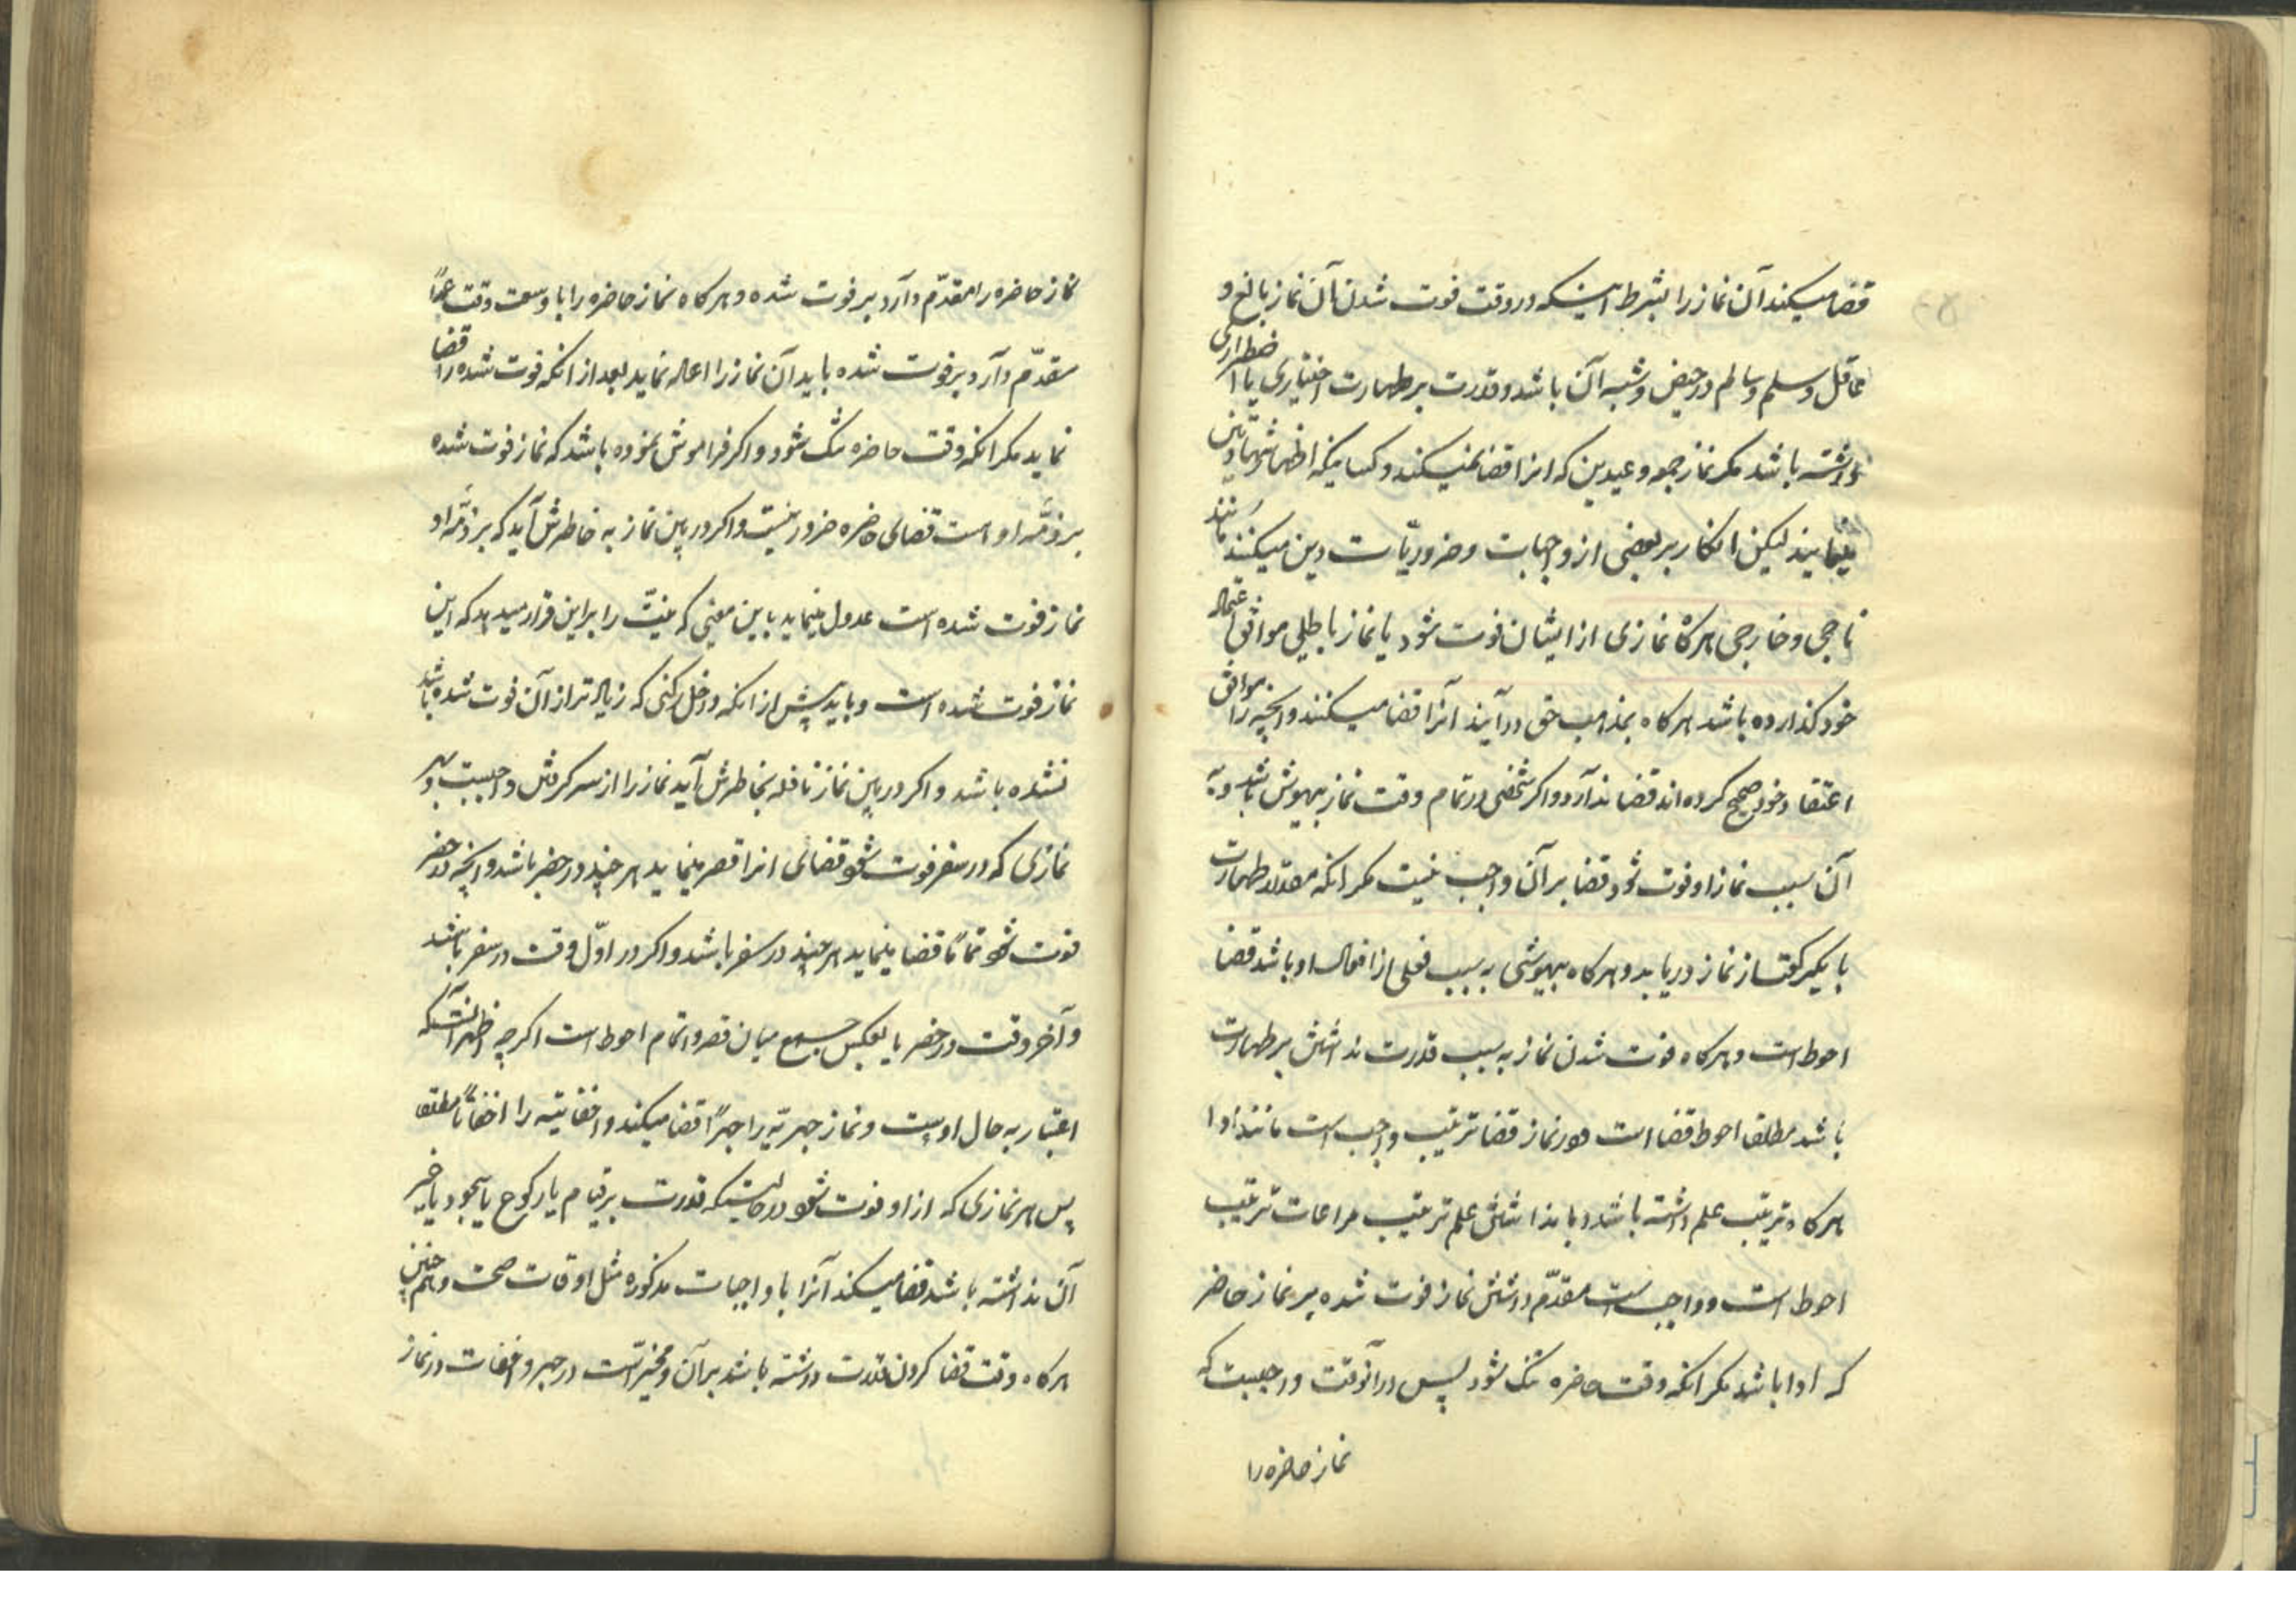 قضا میکند آن نماز را بشرط اینکه در وقت فوت شدن آن نماز بالغ و
عاقل و مسلم و سالم در حیض و شبه آن باشد و قدرت بر طهارت اختیاری یا اضطراری
داشته باشد مکر نماز جمعه و عیدین که انرا قضا نمیکنند و کسانیکه اظهار شهادتین
مینمایند لیکن انکار بر بعضی از واجبات و ضروریّات دین میکنند مانند
ناصبی و خارجی هرکاه نمازی از ایشان فوت شود یا نماز باطلی موافق اعتقاد
خود کذارده باشد هرکاه بمذهب حق در آیند آنرا قضا میکنند و انچه را موافق
اعتقاد خود صحیح کرده اند قضا ندارد و اکر شخصی در تمام وقت نماز بیهوش باشد و به
آن سبب نماز او فوت شود قضا بر آن واجب نیست مکر انکه مقدار طهارت
با یکرکعت از نماز دریابد و هرکاه بیهوشی به سبب فعلی از افعال او باشد قضا
احوط است و هرکاه فوت شدن نماز به سبب قدرت نداشتن بر طهارت
باشد مطلقا احوط قضا است و در نماز قضا ترتیب واجب است مانند ادا
هرکاه بترتیب علم داشته باشد و با نداشتن علم ترتیب مراعات ترتیب
احوط است و واجب است مقدّم داشتن نماز فوت شده بر نماز حاضر
که ادا باشد مکر انکه وقت حاضره تنک شود پس در آنوقت واجبست که
نماز حاضره را
نماز حاضره را مقدّم دارد بر فوت شده و هرکاه نماز حاضره را با وسعت وقت عمداً
مقدّم دارد بر فوت شده باید آن نماز را اعاده نماید بعد از انکه فوت شده را قضا
نماید مکر انکه وقت حاضره تنک شود و اکر فراموش نموده باشد که نماز فوت شده
بر ذمّه او است قضای حاضره ضرور نیست و اکر در بین نماز به خاطرش آید که بر ذمّه او
نماز فوت شده است عدول مینماید باین معنی که نیّت را بر این قرار میدهد که این
نماز فوت شده است و باید پیش از انکه داخل رکنی که زیاده تر از آن فوت شده باشد
نشده باشد و اکر در بین نماز نافله بخاطرش آید نماز را از سر کرفتن واجبست و هر
نمازی که در سفر فوت شود قضای انرا قصر مینماید هر چند در حضر باشد و انچه در حضر
فوت شود تماماً قضا مینماید هر چند در سفر باشد و اکر در اوّل وقت در سفر باشد
و آخر وقت در حضر یا بعکس جمع میان قصر و اتمام احوط است اکرچه اظهر آنستکه
اعتبار به حال اوست و نماز جهریّه را جهراً قضا میکند و اخفاتیّه را اخفاتاً مطلقا
پس هر نمازی که از او فوت شود در حالتیکه قدرت بر قیام یا رکوع یا سجود یا غیر
آن نداشته باشد قضا میکند آنرا با واجبات مذکوره مثل اوقات صحت و همچنین
هرکاه وقت قضا کردن قدرت داشته باشد بر آن و مخیّر است در جهر و اخفات در نماز